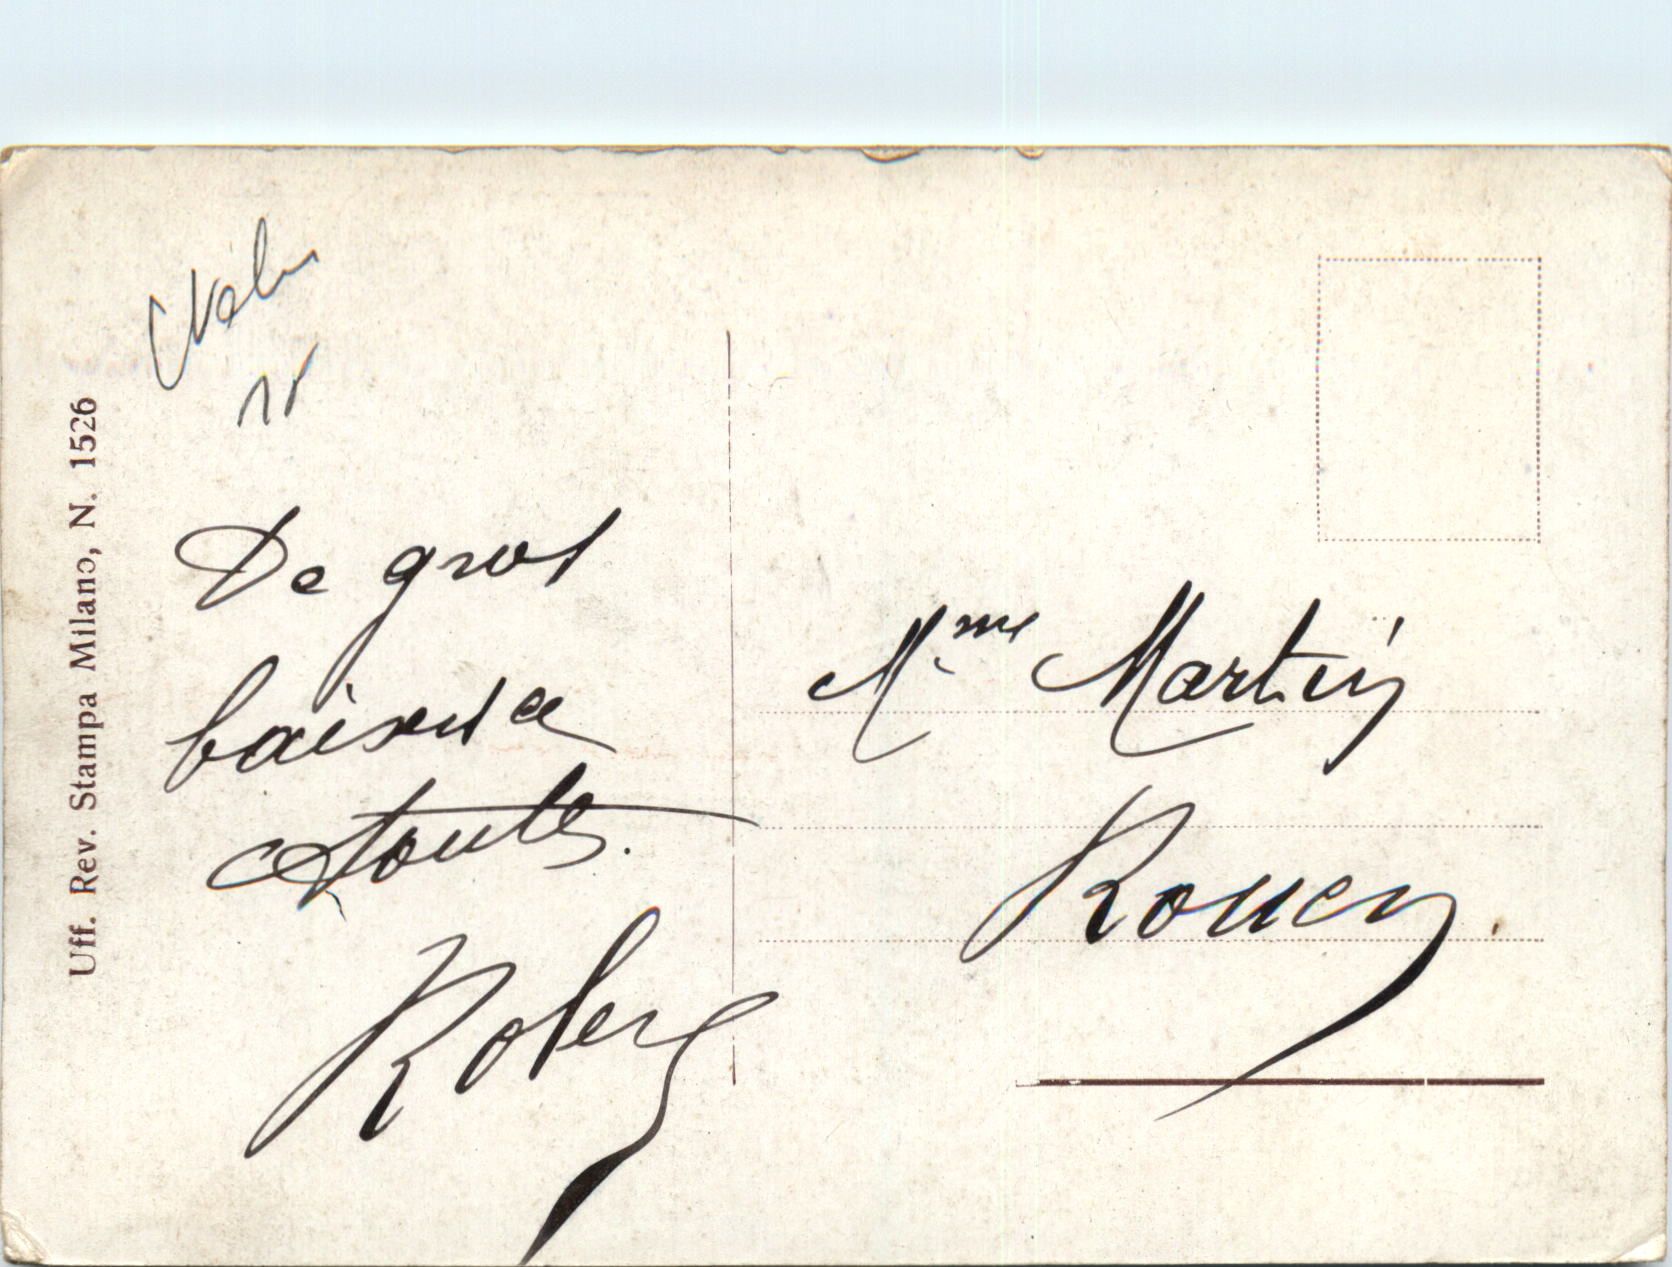 De gros
baisers a
toutes.
Robert
Mme Martin
Rouen.
Uff. Rev. Stampa Milano, N. 1526